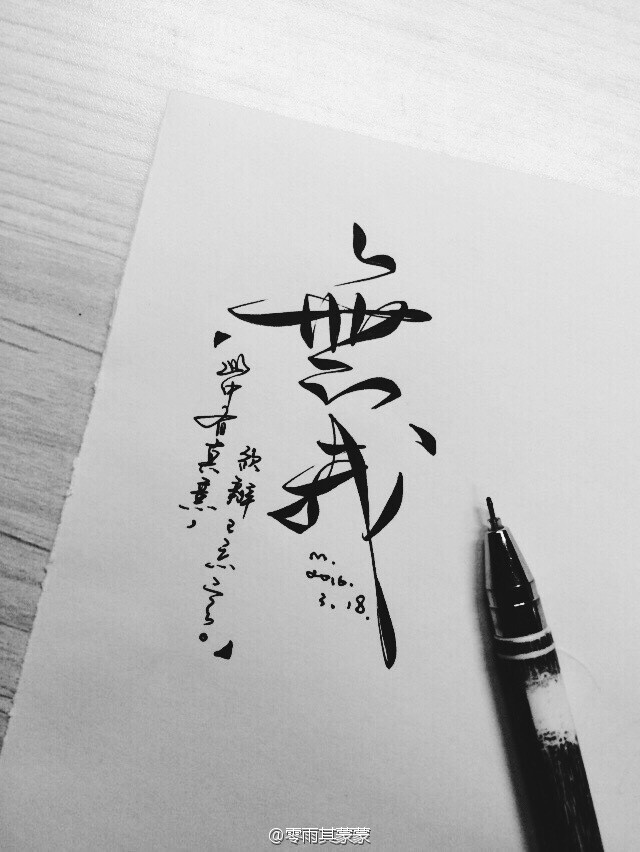 無我
「此中有真意，
欲辨已忘言。」
m.
2016.
3.18.
@零雨其蒙蒙